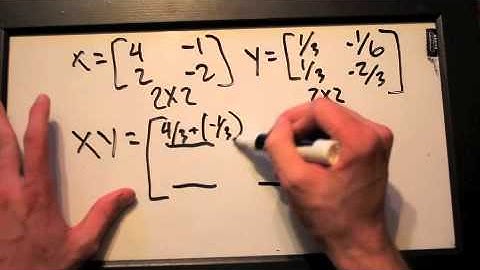 X = [ 4 -1 Y = [ 1/3 -1/6
2 -2 ] 1/3 -2/3 ]
2X2 2X2
XY = [ 4/3 + (-1/3)